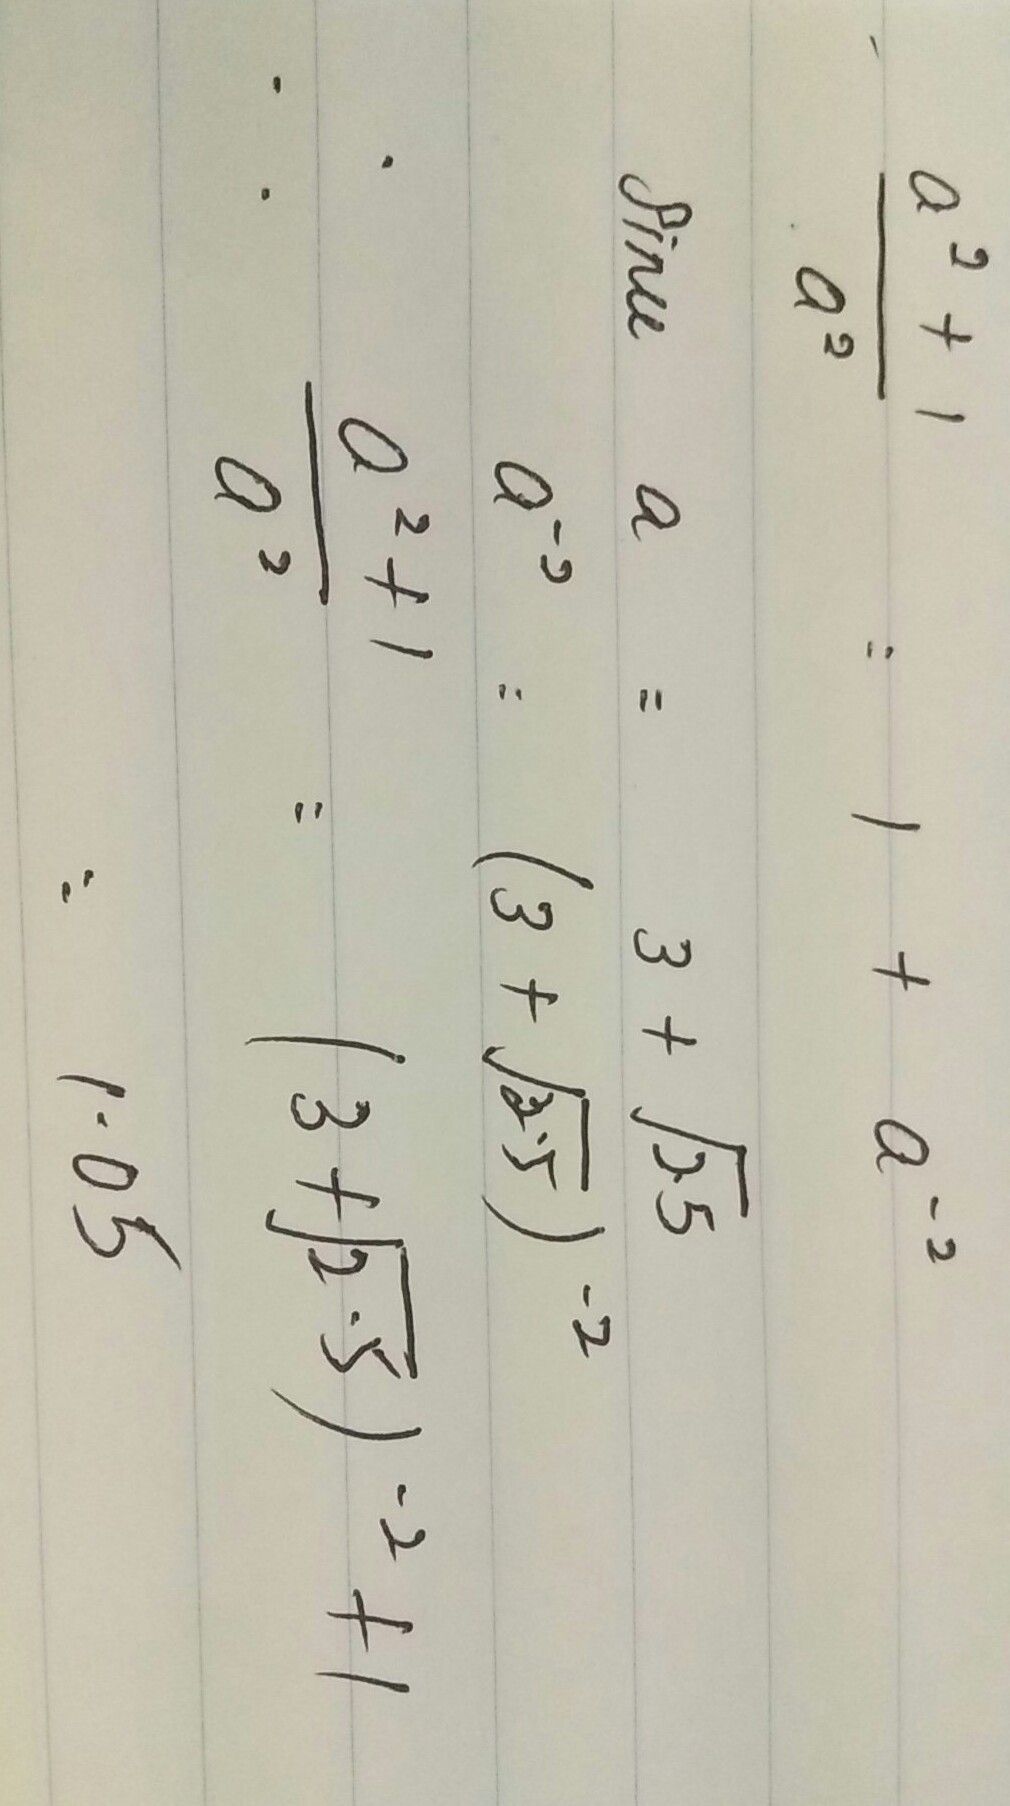 a² + 1 / a² = 1 + a⁻²
Since a = 3 + √2.5
a⁻² = (3 + √2.5)⁻²
∴ a² + 1 / a² = (3 + √2.5)⁻² + 1
= 1.05